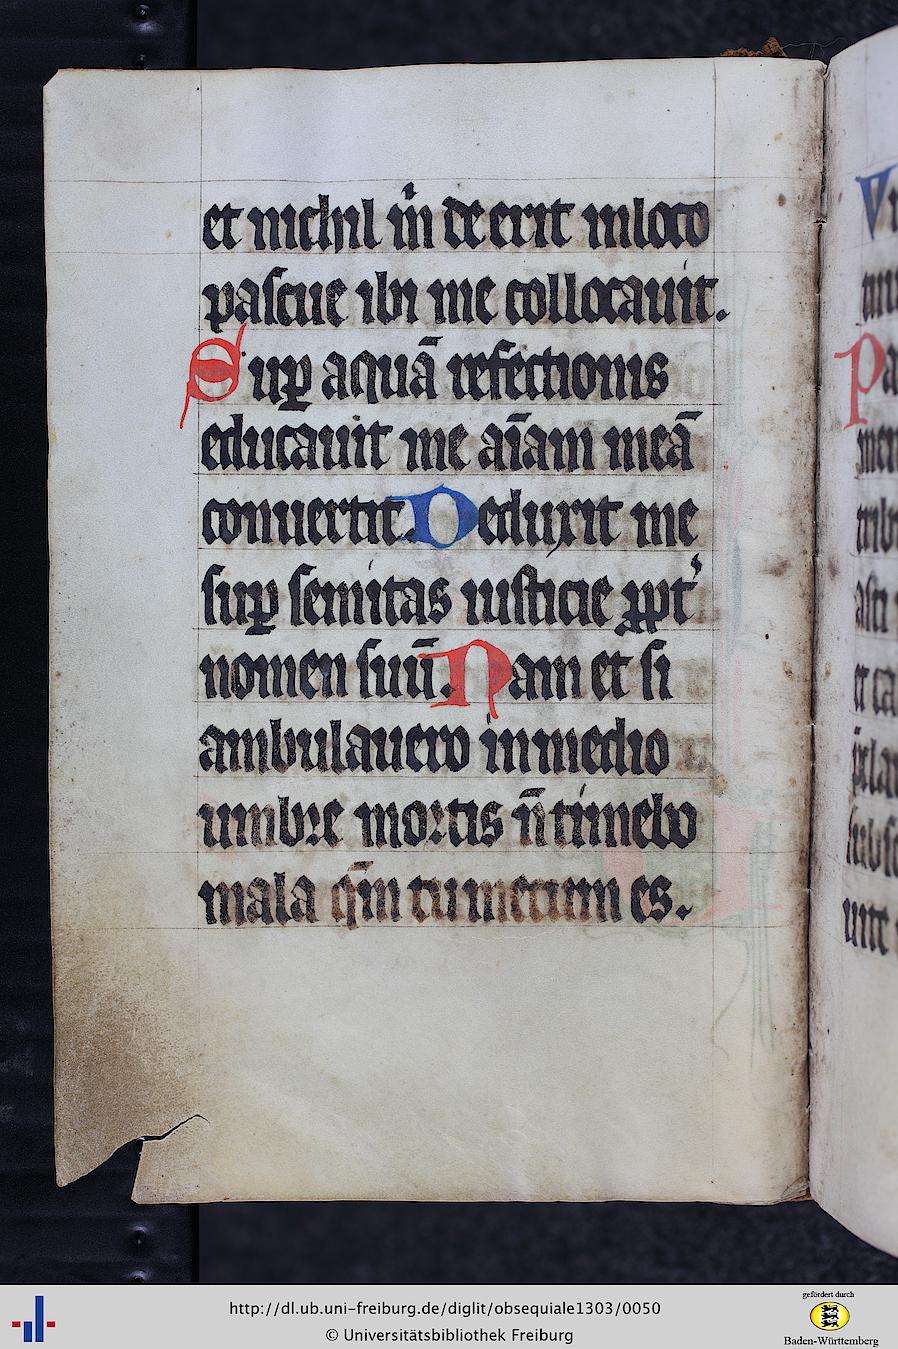 et nichil m̄ de erit in loco
pascue ibi me collocauit.
Suꝑ aquā refectionis
educauit me aīam meā
conuertit. Deduxit me
suꝑ semitas iusticie ꝓpt᾽
nomen suū. Nam et si
ambulauero in medio
umbre mortis n̄ timebo
mala qm̄ tu mecum es.
http://dl.ub.uni-freiburg.de/diglit/obsequiale1303/0050
© Universitätsbibliothek Freiburg
gefördert durch
Baden-Württemberg